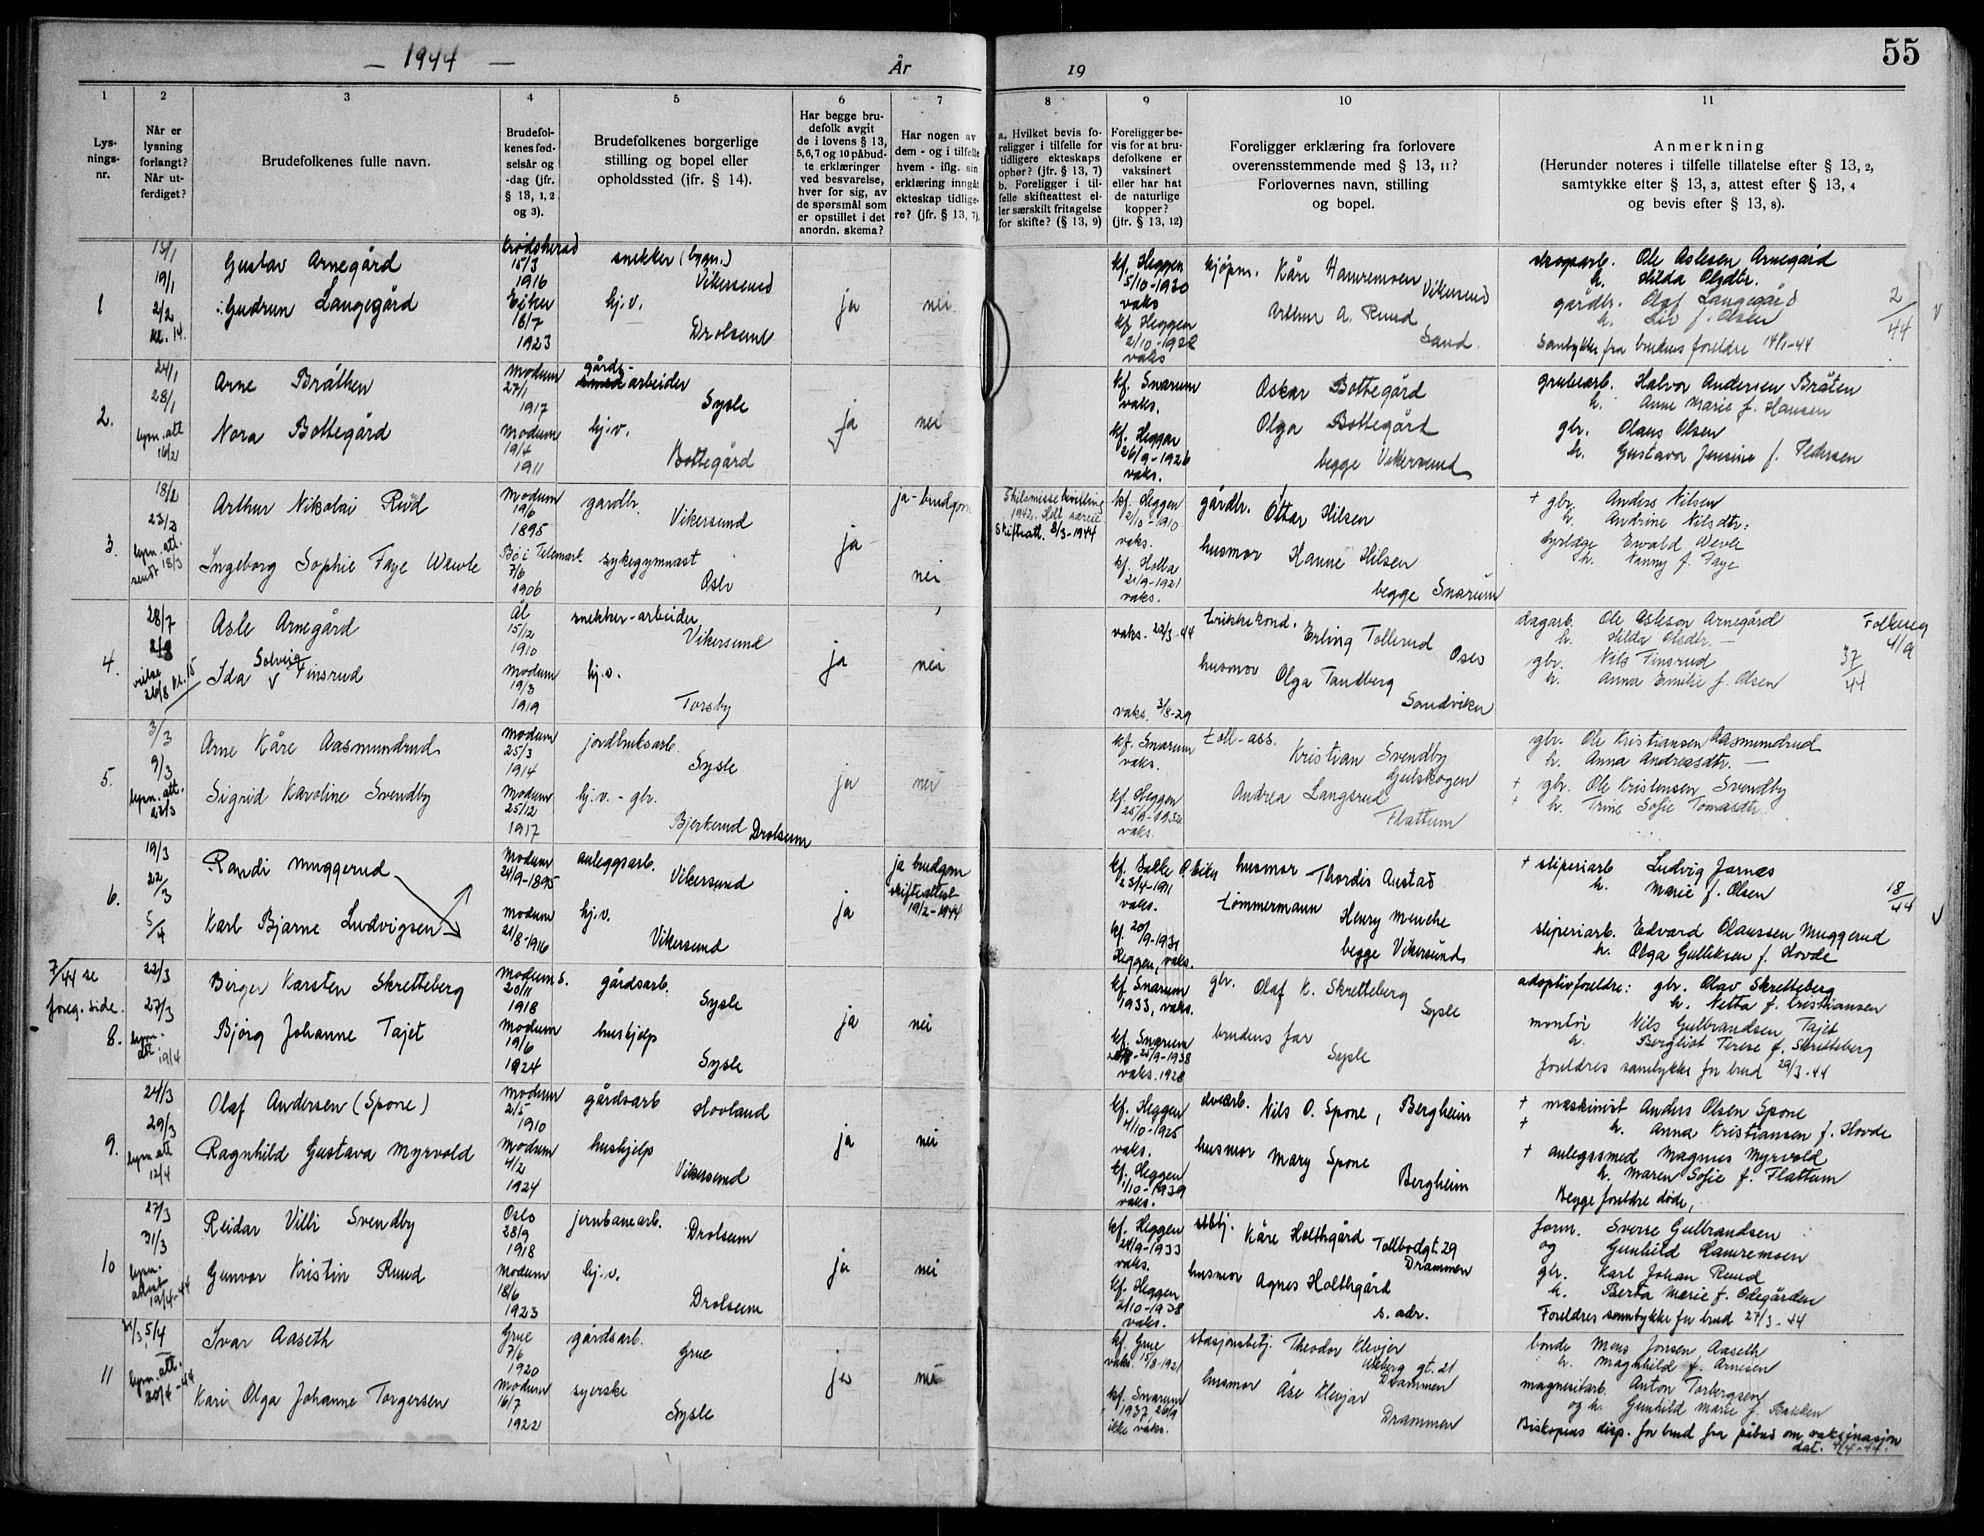 - 1944 -
År
19
55
1
2
3
4
5
6
7
8
9
10
11
Lys-
nings-
nr.
Når er
lysning
forlangt?
Når ut-
ferdiget?
Brudefolkenes fulle navn.
Brudefol-
kenes fød-
selsår og
-dag (jfr.
§ 13, 1, 2
og 3).
Brudefolkenes borgerlige
stilling og bopel eller
opholdssted (jfr. § 14).
Har begge bru-
defolk avgit
de i lovens § 13,
5,6,7 og 10 påbud-
te erklæringer
ved besvarelse,
hver for sig, av
de spørsmål som
er opstillet i det
anordn. skema?
Har nogen av
dem - og i tilfelle
hvem - iflg. sin
erklæring inngåt
ekteskap tidlige-
re? (jfr. § 13, 7).
a. Hvilket bevis fo-
religger i tilfelle for
tidligere ekteskaps
ophør? (jfr. § 13, 7)
b. Foreligger i til-
felle skifteattest el-
ler særskilt fritagelse
for skifte? (§ 13, 9)
Foreligger be-
vis for at bru-
defolkene er
vaksinert
eller har hat
de naturlige
kopper?
(jfr. § 13, 12)
Foreligger erklæring fra forlovere
overensstemmende med § 13, 11?
Forlovernes navn, stilling
og bopel.
Anmerkning
(Herunder noteres i tilfelle tillatelse efter § 13, 2,
samtykke efter § 13, 3, attest efter § 13, 4
og bevis efter § 13, 8).
1
13/1
19/1
2/2
kl. 14.
Gustav Arnegård
Gudrun Langegård
Krødsherad
15/3
1916
Eiker
18/7
1923
snekker (bygn.)
Vikersund
hj.v.
Drolsum
ja
nei
kf. Heggen
5/10-1930
vaks
kf. Heggen
vaks
kjøpm. Kåre Hamremoen
Vikersund
Arthur A. Ruud
Sand.
skogsarb. Ole Aslesen Arnegård
h. Hilda Olsdtr.
gårdbr. Olaf Langegård
h. Siv f. Olsen
Samtykke fra brudens foreldre 14/1-44
2/44
2.
24/1
28/1
lysn. att
16/2
Arne Bråthen
Nora Bottegård
Modum
27/1
1917
Modum
19/4
1911
gårds-
arbeider
Sysle
hj.v.
Bottegård
ja
nei
kf. Snarum
vaks.
kf. Heggen
26/9-1926
vaks.
Oskar Bottegård
Olga Bottegård
begge Vikersund
grubearb. Halvor Andersen Bråten
h. Anne Marie f. Hansen
gbr. Olaus Olsen
h. Gustava Jensine f. Pedersen
3.
18/2
23/2
lysn. att.
sendt 18/3
Arthur Nikolai Rud
Ingeborg Sophie Faye Wevle
Modum
19/6
1895
Bø i Telemark
7/6
1906
gardbr.
Vikersund
sykegymnast
Oslo
ja
ja - brudgom
nei
Skilsmissebevilling
1942.
Skifteatt. 8/3-1944
kf. Heggen
2/10-1910
vaks.
kf. Holla
21/9-1921
vaks.
gårdbr. Ottar Hilsen
husmor Hanne Hilsen
begge Snarum
+ gbr. Anders Nilsen
h. Andrine Nilsdtr.
dyrlæge Ewald Wevle
h. Nanny f. Faye
4.
28/7
2/8
vielse
26/8 kl. 15
Asle Arnegård
Solveig
Ida v Finsrud
Ål
15/12
1910
Modum
19/3
1919
snekker-arbeider
Vikersund
hj.v.
Torsby
ja
nei
vaks. 22/3-44
vaks. 3/8-29
trikkekond. Erling Tollerud
Oslo
husmor Olga Tandberg
Sandviken
dagarb. Ole Aslesen Arnegård
h. Hilda Olsdtr. -
gbr. Nils Finsrud
h. Anna Emilie f. Olsen
37/44
Folkereg
4/9
5.
3/3
9/3
lysn. att.
23/3
Arne Kåre Aasmundrud
Sigrid Karoline Svendby
Modum
25/3
1914
Modum
25/12
1917
jordbruksarb.
Sysle
hj.v. - gbr.
Bjerkerud Drolsum
ja
nei
kf. Snarum
vaks.
kf. Heggen
25/9-1932
vaks.
toll-ass. Kristian Svendby
Gulskogen
Andrea Langsrud
Flattum
gbr. Ole Kristiansen Aasmundrud
h. Anna Andreasdtr. -
+ gbr. Ole Kristensen Svendby
+ h. Trine Sofie Tomasdtr.
6.
19/3
22/3
5/4
Randi Muggerud
Karl Bjarne Ludvigsen
Modum
24/9-1895
Modum
21/8-1916
anleggsarb.
Vikersund
hj.v.
Vikersund
ja
ja brudgom
skifteattest
19/2-1944
kf. Bakke
23/4-1911
vaks.
kf. 20/9-1931
Heggen, vaks.
husmor Thordis Austad
tømmermann Henry Menche
begge Vikersund
+ sliperiarb Ludvig Jarnæs
h. Marie f. Olsen
sliperiarb. Edvard Olaussen Muggerud
h. Olga Gulliksen f. Hovde
18/44
7/44 se
foreg. side.
8.
22/3
27/3
lysn.-
att 19/4
Birger Karsten Skretteberg
Bjørg Johanne Tajet
Modum s.
20/11
1918
Modum
19/6
1924
gårdsarb.
Sysle
hushjelp
Sysle
ja
nei
kf. Snarum
1933, vaks.
kf. Snarum
25/9-1938
vaks. 1928
gbr. Olaf K. Skretteberg
Sysle
brudens far
Sysle
adoptivforeldre: gbr. Olav Skretteberg
h. Netta f. Kristiansen
montør Nils Gulbrandsen Tajet
h. Bergliot Terese f. Skretteberg
foreldres samtykke for brud 29/3-44
9.
24/3
29/3
lysn att
12/4
Olaf Andersen (Spone)
Ragnhild Gustava Myrvold
Modum
2/5
1910
Modum
4/2
1924
gårdsarb
Hovland
hushjelp
Vikersund
ja
nei
kf. Heggen
4/10-1925
vaks.
kf. Heggen
1/10-1939
vaks.
Nils O. Spone, Bergheim
husmor Mary Spone
Bergheim
+ maskinist Anders Olsen Spone
+ h. Anna Kristiansen f. Hovde
+ anlegssmed Magnus Myrvold
h. Maren Sofie f. Flattum
Begge foreldre døde,
10
27/3
31/3
lysn.-
attest
19/4-44
Reidar Villi Svendby
Gunvor Kristin Ruud
Oslo
28/9
1918
Modum
18/6
1923
jernbanearb.
Drolsum
hj.v.
Drolsum
ja
nei
kf. Heggen
24/9-1933
vaks.
kf. Heggen
2/10-1938
vaks.
Kåre Holthgård Tollbodgt. 29
Drammen
husmor Agnes Holthgård
s. adr.
form. Sverre Gulbrandsen
og Gunhild Hamremoen
gbr. Karl Johan Ruud
h. Berta Marie f. Ødegården
Foreldres samtykke for brud 27/3-44
11
5/4
lysn. att.
20/4-44
Ivar Aaseth
Kari Olga Johanne Torgersen
Grue
7/6
1920
Modum
16/7
1922
gårdsarb.
Grue
syerske
Sysle
ja
nei
kf. Grue
vaks. 15/8-1921
kf. Snarum
1937 26/9
ikke vaks.
stasjonsbetj. Theodor Klevjer
gt. 21
Drammen
husmor Åse Klevjar
Drammen
bonde Mons Jonsen Aaseth
h. Magnhild f. Arnesen
magnesitarb. Anton Torbergsen
og h. Gunhild Marie f. Bakken
Biskopens disp. for brud fra påbud om vaksinasjon
dat. 4/4-44.